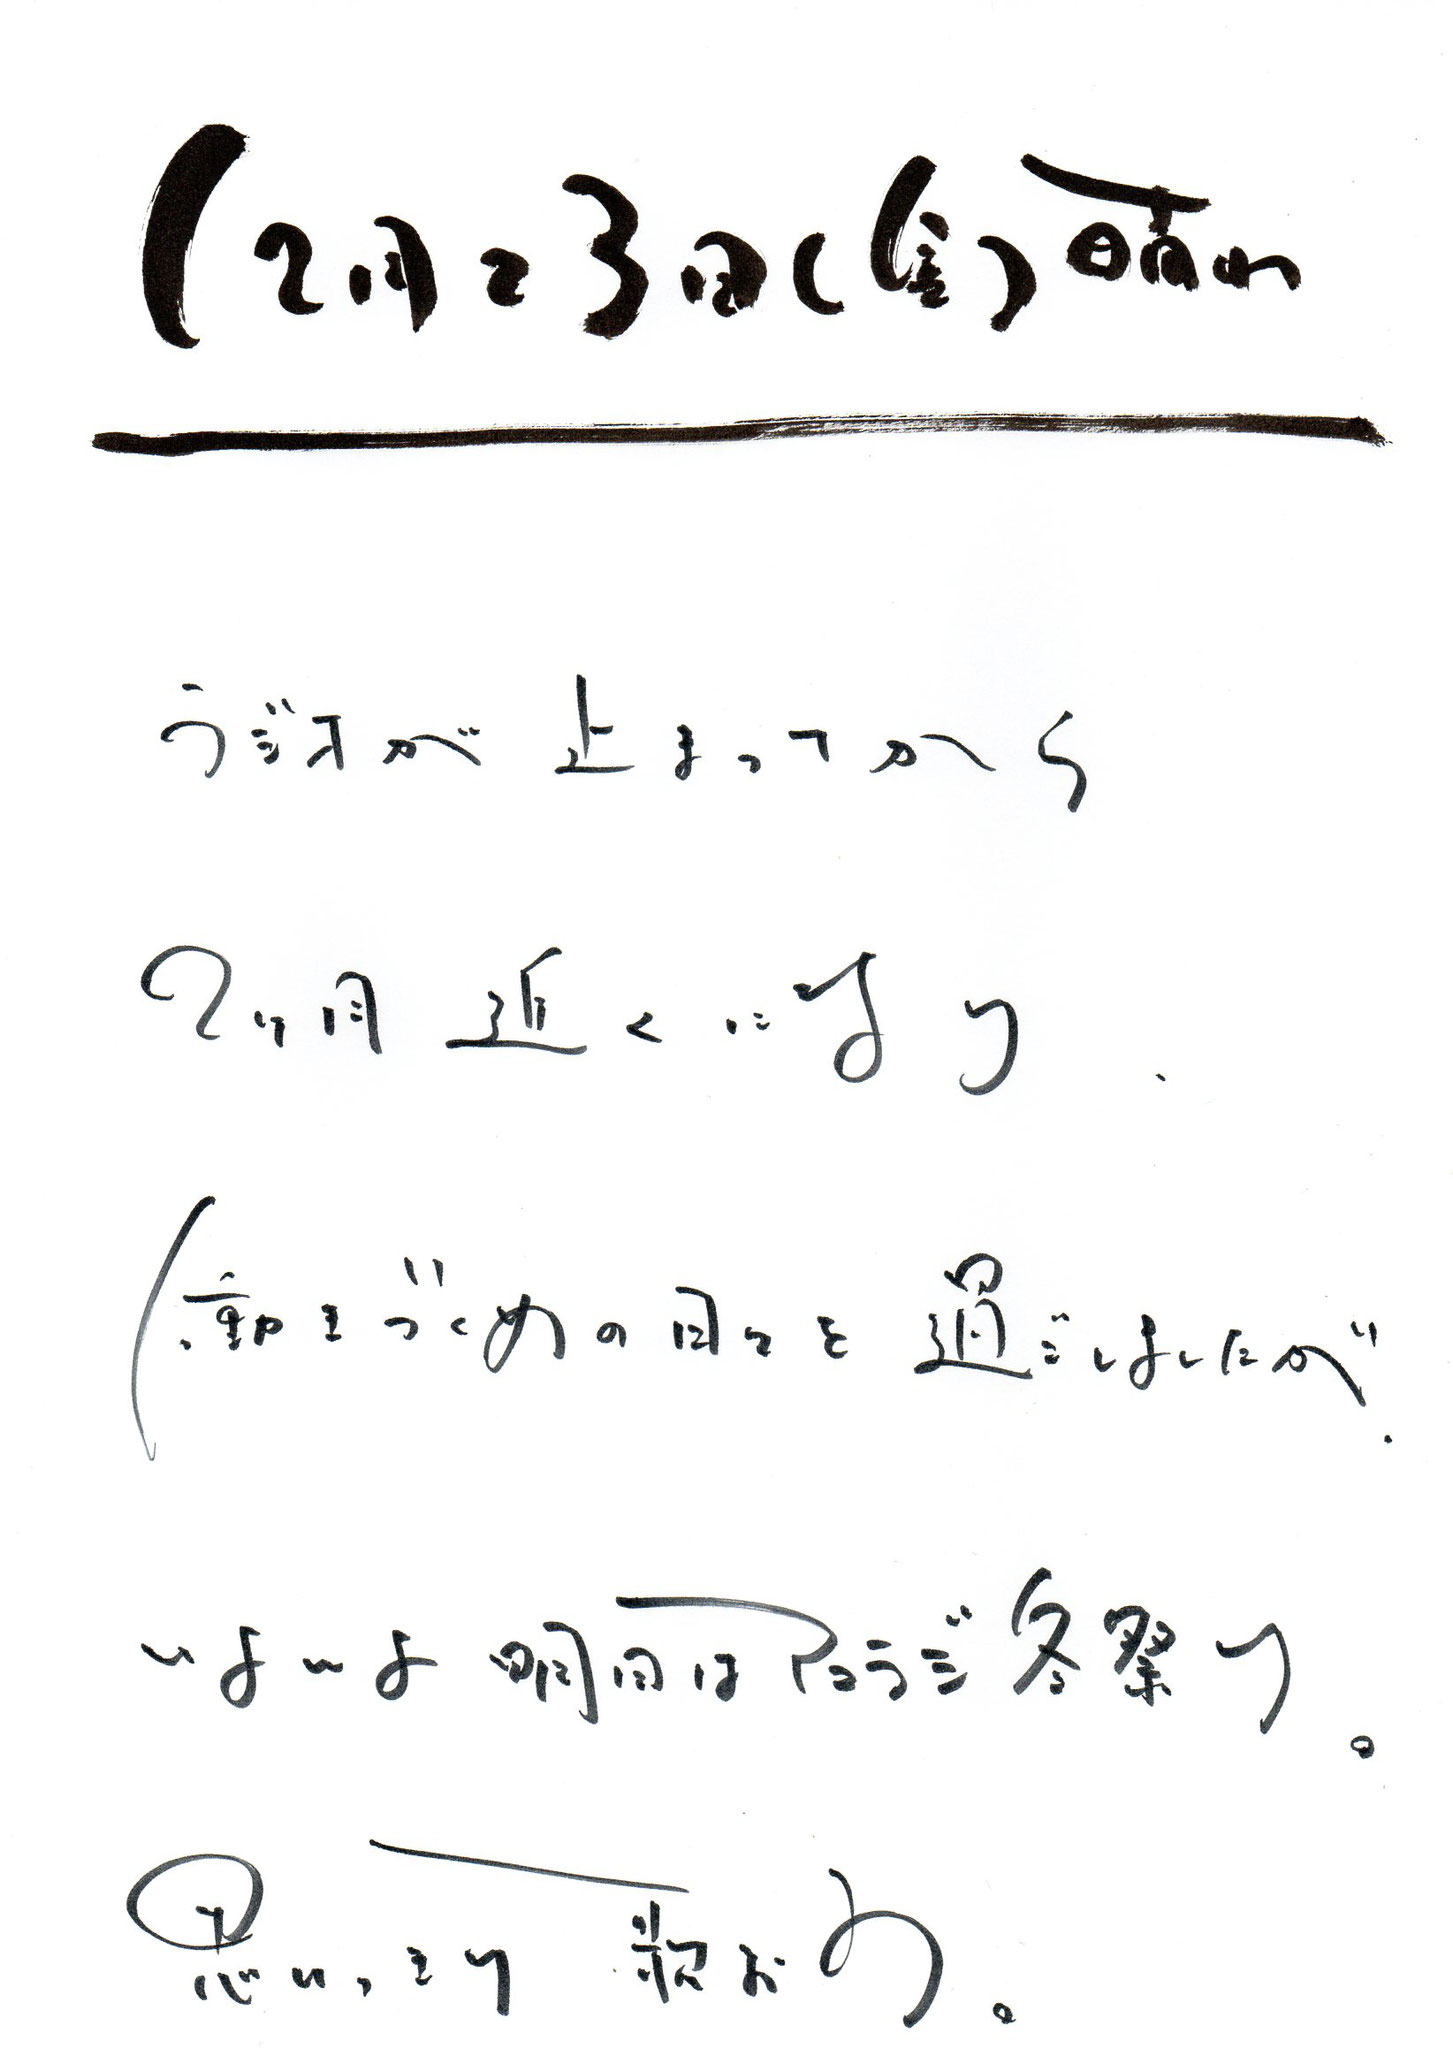 12月23日(金)晴れ
ラジオが止まってから
2ヶ月近くになり、
激動きづくめの日々を過ごしましたが、
いよいよ明日はアコラジ冬祭り。
思いっきり歌おう。